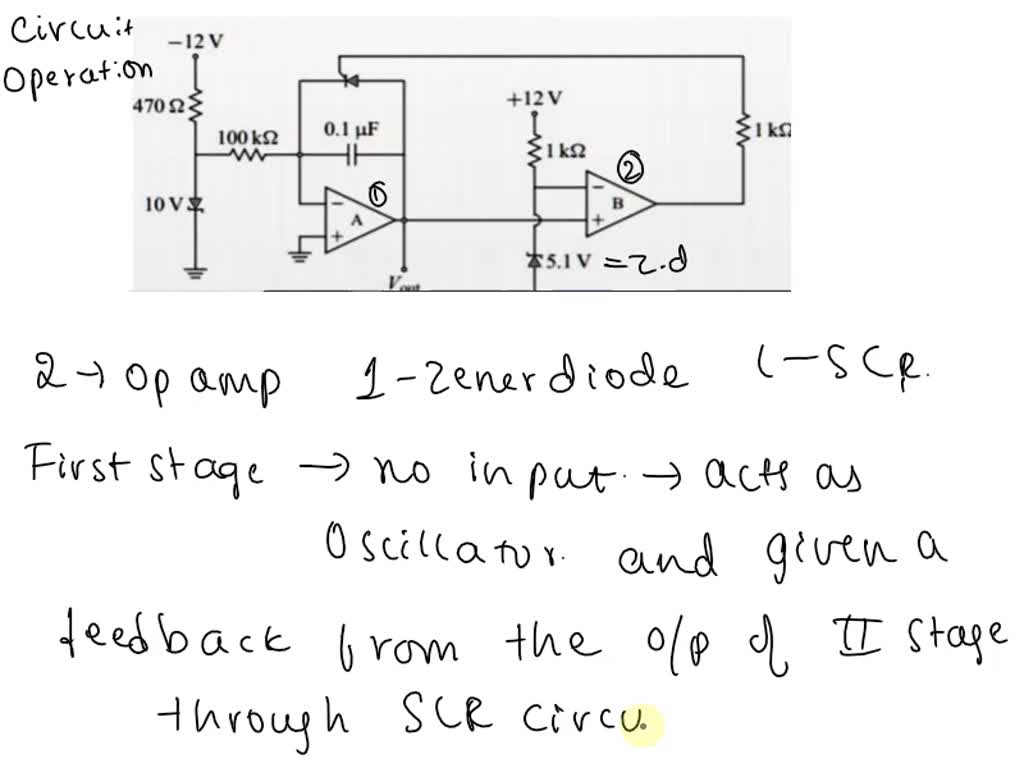 Circuit
Operation
-12 V
470 Ω
100 kΩ
0.1 μF
10 V
①
-
A
+
Vout
+12 V
1 kΩ
②
-
B
+
1 kΩ
5.1 V = z.d
2 → Op amp 1 - zener diode 1 - SCR.
First stage → no input. → acts as
Oscillator. and given a
feedback from the o/p of II stage
through SCR circu